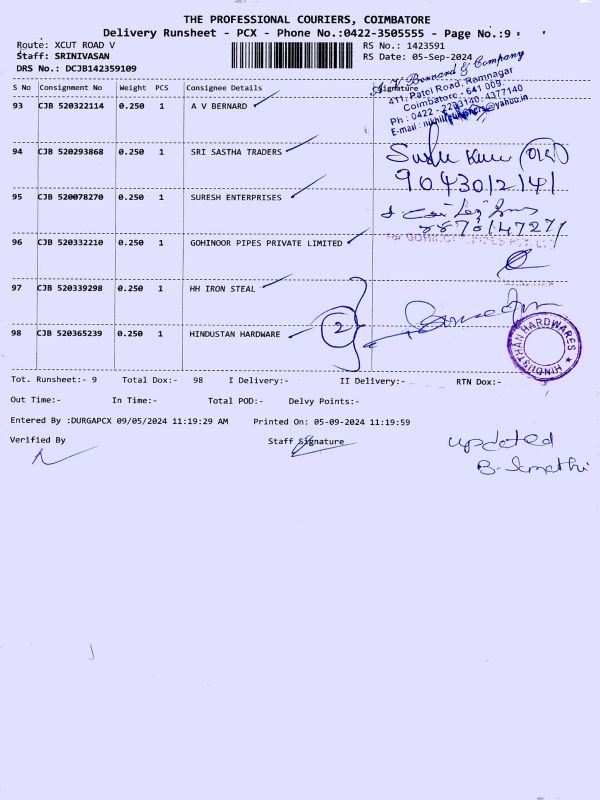 THE PROFESSIONAL COURIERS, COIMBATORE
Delivery Runsheet - PCX - Phone No.:0422-3505555 - Page No.:9
Route: XCUT ROAD V RS No.: 1423591
Staff: SRINIVASAN RS Date: 05-Sep-2024
DRS No.: DCJB142359109
A. V. Bernard & Company
411, Patel Road, Ramnagar
Coimbatore - 641 009.
S No Consignment No Weight PCS Consignee Details Signature
93 CJB 520322114 0.250 1 A V BERNARD
94 CJB 520293868 0.250 1 SRI SASTHA TRADERS
9043012141
95 CJB 520078270 0.250 1 SURESH ENTERPRISES
96 CJB 520332210 0.250 1 GOHINOOR PIPES PRIVATE LIMITED
97 CJB 520339298 0.250 1 HH IRON STEAL
98 CJB 520365239 0.250 1 HINDUSTAN HARDWARE
2
HINDUSTHAN HARDWARES
Tot. Runsheet:- 9 Total Dox:- 98 I Delivery:- II Delivery:- RTN Dox:-
Out Time:- In Time:- Total POD:- Delvy Points:-
Entered By :DURGAPCX 09/05/2024 11:19:29 AM Printed On: 05-09-2024 11:19:59
Verified By Staff Signature
updated